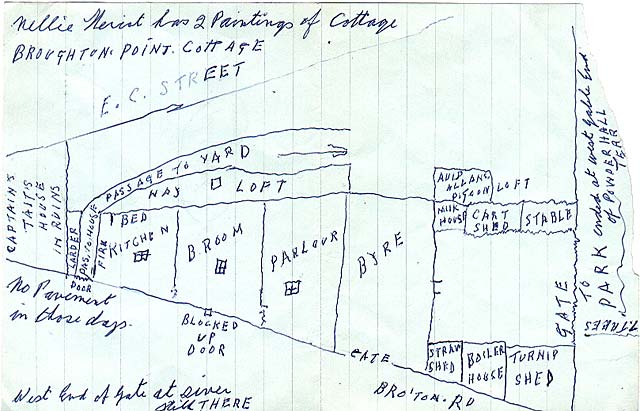 Nellie Merist has 2 Paintings of Cottage
BROUGHTON. POINT. COTTAGE
E. C. STREET
PASSAGE TO YARD
HAY LOFT
CAPTAIN'S
TAITIS
HOUSE
IN RUINS
LARDER
PAS. TO HOUSE
FIRE
BED
KITCHEN
B. ROOM
PARLOUR
BYRE
DOOR
BLOCKED
UP
DOOR
No Pavement
in those days.
AULD
ALLANS
PIGEON LOFT
MILK
HOUSE
CART
SHED
STABLE
GATE
TO
PARK ended at west gable End
of POWDERHALL
TERR
STRAW
SHED
BOILER
HOUSE
TURNIP
SHED
GATE
BRO'TON. RD
West End of Gate at river
still THERE